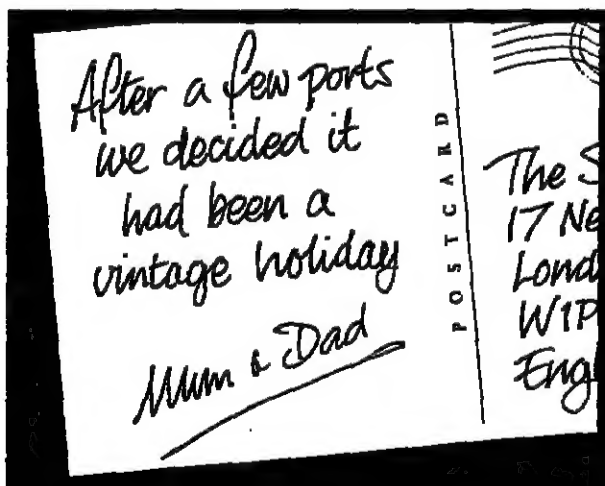 After a few ports
we decided it
had been a
vintage holiday
Mum & Dad
POSTCARD
The
17
W1P